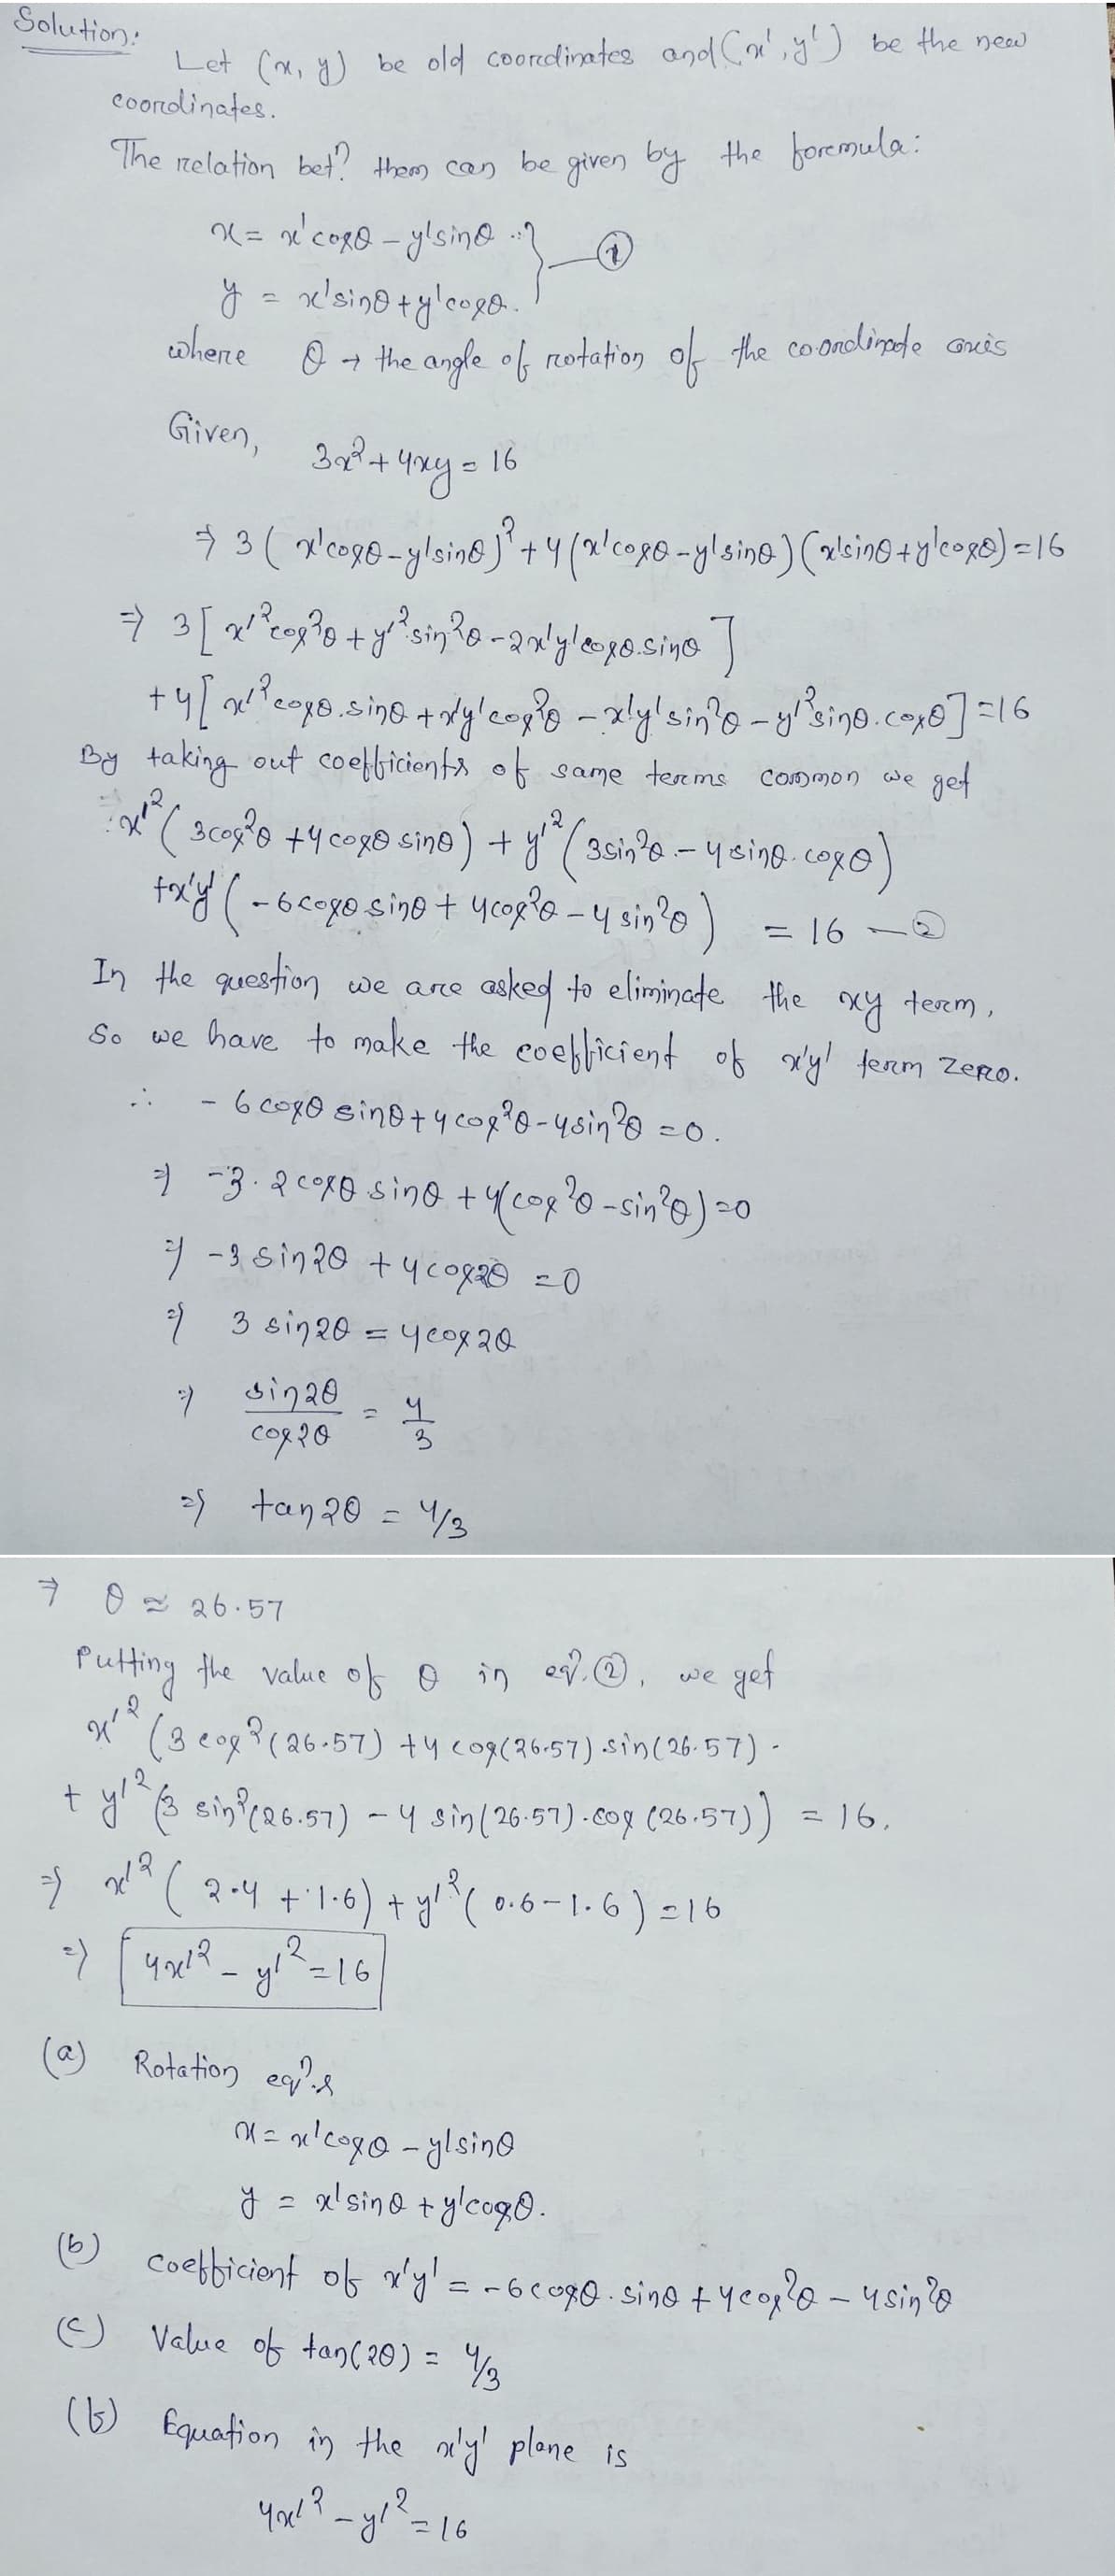 Solution:
Let (x, y) be old coordinates and (x', y') be the new
coordinates.
The relation betⁿ them can be given by the formula:
x = x'cosθ - y'sinθ
y = x'sinθ + y'cosθ. } — ①
where θ → the angle of rotation of the coordinate axis
Given, 3x² + 4xy = 16
⇒ 3(x'cosθ - y'sinθ)² + 4(x'cosθ - y'sinθ)(x'sinθ + y'cosθ) = 16
⇒ 3[x'²cos²θ + y'²sin²θ - 2x'y'cosθ.sinθ]
+ 4[x'²cosθ.sinθ + x'y'cos²θ - x'y'sin²θ - y'²sinθ.cosθ] = 16
By taking out coefficients of same terms common we get
x'²(3cos²θ + 4cosθ sinθ) + y'²(3sin²θ - 4sinθ.cosθ)
+ x'y'(-6cosθ sinθ + 4cos²θ - 4sin²θ) = 16 — ②
In the question we are asked to eliminate the xy term,
So we have to make the coefficient of x'y' term zero.
∴ -6cosθ sinθ + 4cos²θ - 4sin²θ = 0.
⇒ -3.2cosθ.sinθ + 4(cos²θ - sin²θ) = 0
⇒ -3 sin2θ + 4cos2θ = 0
⇒ 3 sin2θ = 4cos2θ
⇒ sin2θ/cos2θ = 4/3
⇒ tan2θ = 4/3
⇒ θ ≈ 26.57
Putting the value of θ in eqⁿ. ②, we get
x'²(3cos²(26.57) + 4cos(26.57).sin(26.57).
+ y'²(3 sin²(26.57) - 4 sin(26.57).cos(26.57)) = 16.
⇒ x'²(2.4 + 1.6) + y'²(0.6 - 1.6) = 16
⇒ 4x'² - y'² = 16
(a) Rotation eqⁿ.s
x = x'cosθ - y'sinθ
y = x'sinθ + y'cosθ.
(b) Coefficient of x'y' = -6cosθ.sinθ + 4cos²θ - 4sin²θ
(c) Value of tan(2θ) = 4/3
(b) Equation in the x'y' plane is
4x'² - y'² = 16